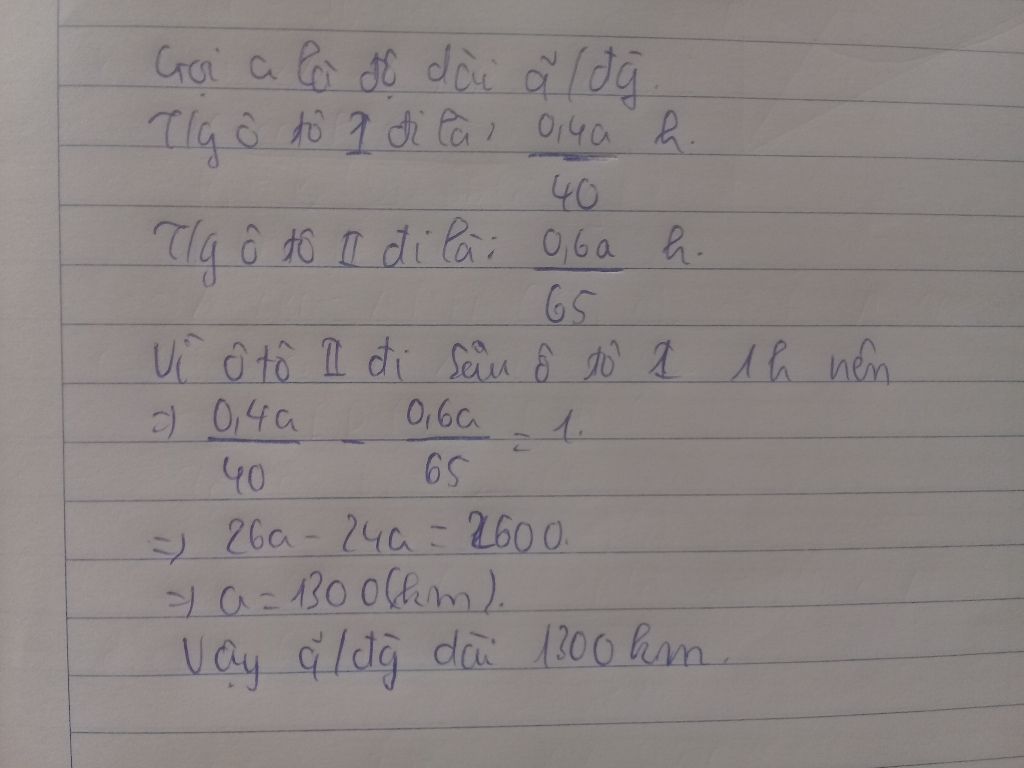 Gọi a là độ dài q̃/đg̃.
T/g ô tô I đi là: 0,4a/40 h.
T/g ô tô II đi là: 0,6a/65 h.
Vì ô tô II đi sau ô tô I 1h nên
=> 0,4a/40 - 0,6a/65 = 1.
=> 26a - 24a = 2600.
=> a = 1300(km).
Vậy q̃/đg̃ dài 1300km.